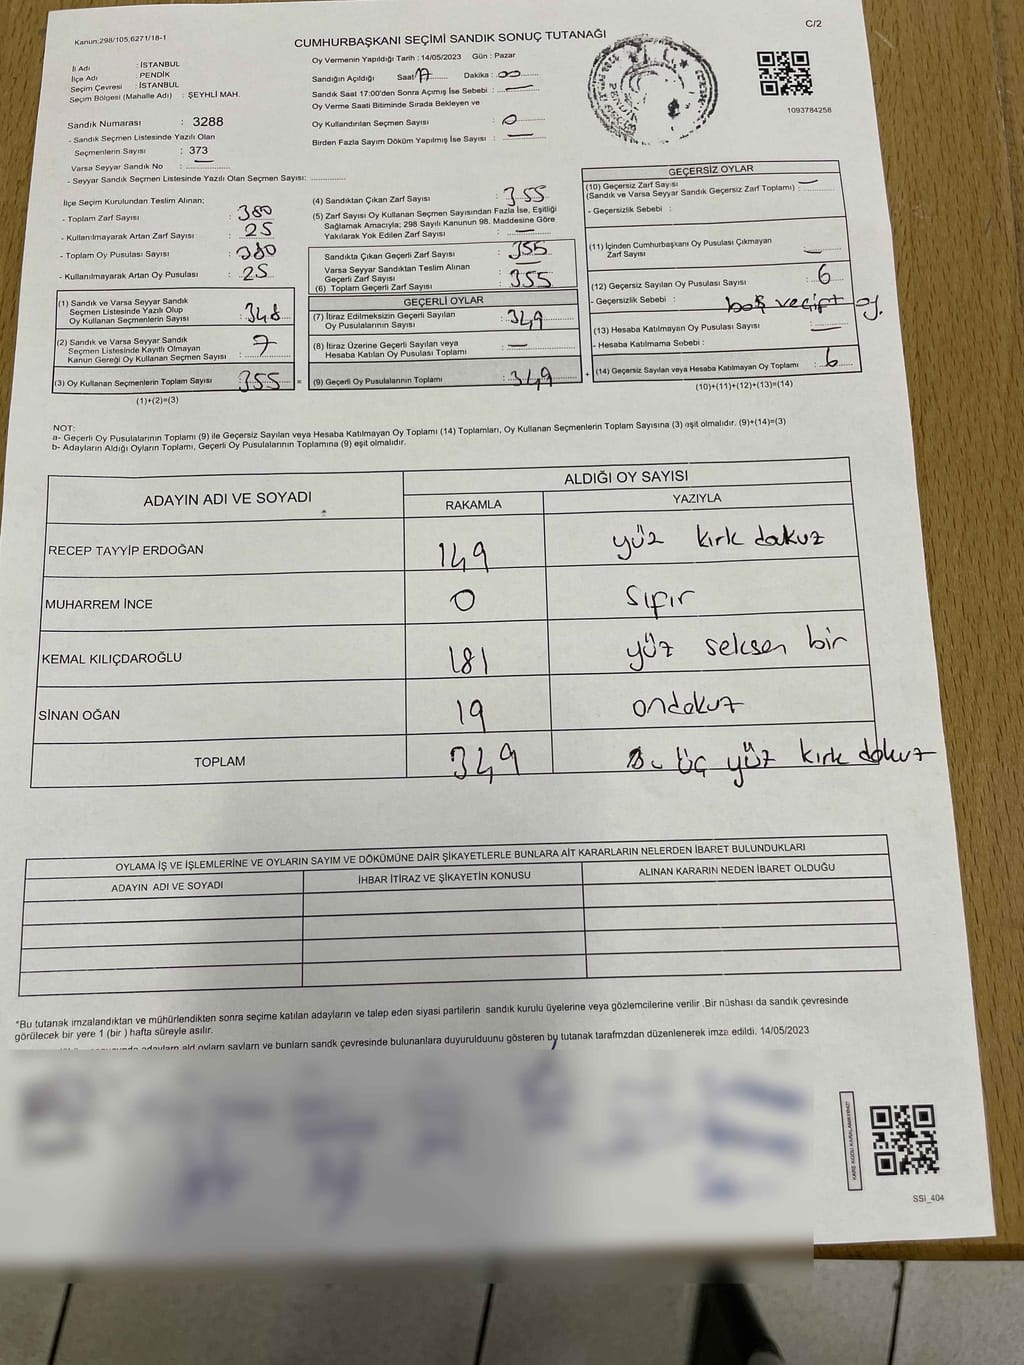 C/2
Kanun:298/105;6271/18-1
CUMHURBAŞKANI SEÇİMİ SANDIK SONUÇ TUTANAĞI
İl Adı : İSTANBUL
İlçe Adı : PENDİK
Seçim Çevresi : İSTANBUL
Seçim Bölgesi (Mahalle Adı) : ŞEYHLİ MAH.
Sandık Numarası : 3288
- Sandık Seçmen Listesinde Yazılı Olan
Seçmenlerin Sayısı : 373
Varsa Seyyar Sandık No : —
- Seyyar Sandık Seçmen Listesinde Yazılı Olan Seçmen Sayısı:
Oy Vermenin Yapıldığı Tarih : 14/05/2023 Gün : Pazar
Sandığın Açıldığı Saat 17 Dakika : 00
Sandık Saat 17:00'den Sonra Açımış İse Sebebi : —
Oy Verme Saati Bitiminde Sırada Bekleyen ve
Oy Kullandırılan Seçmen Sayısı : 0
Birden Fazla Sayım Döküm Yapılmış İse Sayısı : —
1093784258
PENDİK
İlçe Seçim Kurulundan Teslim Alınan;
- Toplam Zarf Sayısı : 380
- Kullanılmayarak Artan Zarf Sayısı : 25
- Toplam Oy Pusulası Sayısı : 380
- Kullanılmayarak Artan Oy Pusulası : 25
(1) Sandık ve Varsa Seyyar Sandık
Seçmen Listesinde Yazılı Olup
Oy Kullanan Seçmenlerin Sayısı : 348
(2) Sandık ve Varsa Seyyar Sandık
Seçmen Listesinde Kayıtlı Olmayan
Kanun Gereği Oy Kullanan Seçmen Sayısı : 7
(3) Oy Kullanan Seçmenlerin Toplam Sayısı 355 =
(1)+(2)=(3)
(4) Sandıktan Çıkan Zarf Sayısı : 355
(5) Zarf Sayısı Oy Kullanan Seçmen Sayısından Fazla İse, Eşitliği
Sağlamak Amacıyla; 298 Sayılı Kanunun 98. Maddesine Göre
Yakılarak Yok Edilen Zarf Sayısı : —
Sandıkta Çıkan Geçerli Zarf Sayısı : 355
Varsa Seyyar Sandıktan Teslim Alınan
Geçerli Zarf Sayısı : —
(6) Toplam Geçerli Zarf Sayısı : 355
GEÇERLİ OYLAR
(7) İtiraz Edilmeksizin Geçerli Sayılan
Oy Pusulalarının Sayısı : 349
(8) İtiraz Üzerine Geçerli Sayılan veya
Hesaba Katılan Oy Pusulası Toplamı : —
(9) Geçerli Oy Pusulalarının Toplamı : 349 +
GEÇERSİZ OYLAR
(10) Geçersiz Zarf Sayısı
(Sandık ve Varsa Seyyar Sandık Geçersiz Zarf Toplamı) : —
- Geçersizlik Sebebi :
(11) İçinden Cumhurbaşkanı Oy Pusulası Çıkmayan
Zarf Sayısı : —
(12) Geçersiz Sayılan Oy Pusulası Sayısı : 6
- Geçersizlik Sebebi : boş ve çift oy.
(13) Hesaba Katılmayan Oy Pusulası Sayısı : —
- Hesaba Katılmama Sebebi :
(14) Geçersiz Sayılan veya Hesaba Katılmayan Oy Toplamı : 6
(10)+(11)+(12)+(13)=(14)
NOT:
a- Geçerli Oy Pusulalarının Toplamı (9) ile Geçersiz Sayılan veya Hesaba Katılmayan Oy Toplamı (14) Toplamları, Oy Kullanan Seçmenlerin Toplam Sayısına (3) eşit olmalıdır. (9)+(14)=(3)
b- Adayların Aldığı Oyların Toplamı, Geçerli Oy Pusulalarının Toplamına (9) eşit olmalıdır.
ADAYIN ADI VE SOYADI ALDIĞI OY SAYISI
RAKAMLA YAZIYLA
RECEP TAYYİP ERDOĞAN 149 yüz kırk dokuz
MUHARREM İNCE 0 Sıfır
KEMAL KILIÇDAROĞLU 181 yüz seksen bir
SİNAN OĞAN 19 ondokuz
TOPLAM 349 üç yüz kırk dokuz
OYLAMA İŞ VE İŞLEMLERİNE VE OYLARIN SAYIM VE DÖKÜMÜNE DAİR ŞİKAYETLERLE BUNLARA AİT KARARLARIN NELERDEN İBARET BULUNDUKLARI
ADAYIN ADI VE SOYADI İHBAR İTİRAZ VE ŞİKAYETİN KONUSU ALINAN KARARIN NEDEN İBARET OLDUĞU
*Bu tutanak imzalandıktan ve mühürlendikten sonra seçime katılan adayların ve talep eden siyasi partilerin sandık kurulu üyelerine veya gözlemcilerine verilir .Bir nüshası da sandık çevresinde
görülecek bir yere 1 (bir ) hafta süreyle asılır.
adayların ald oyların sayların ve bunların sandk çevresinde bulunanlara duyurulduunu gösteren bu tutanak tarafmzdan düzenlenerek imza edildi. 14/05/2023
KARE KODU KARALAMAYINIZ!
SSI_404